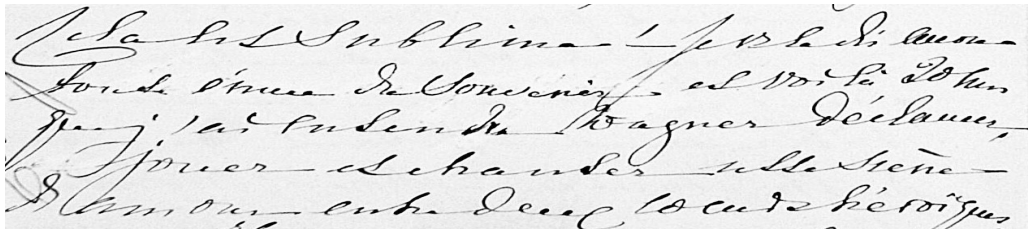 cela est sublime! — Je vs le dis encore
toute émue du souvenir — et voilà 20 ans
que j'ai entendu Wagner déclamer,
jouer et chanter cette scène
d'amour entre deux cœurs héroïques